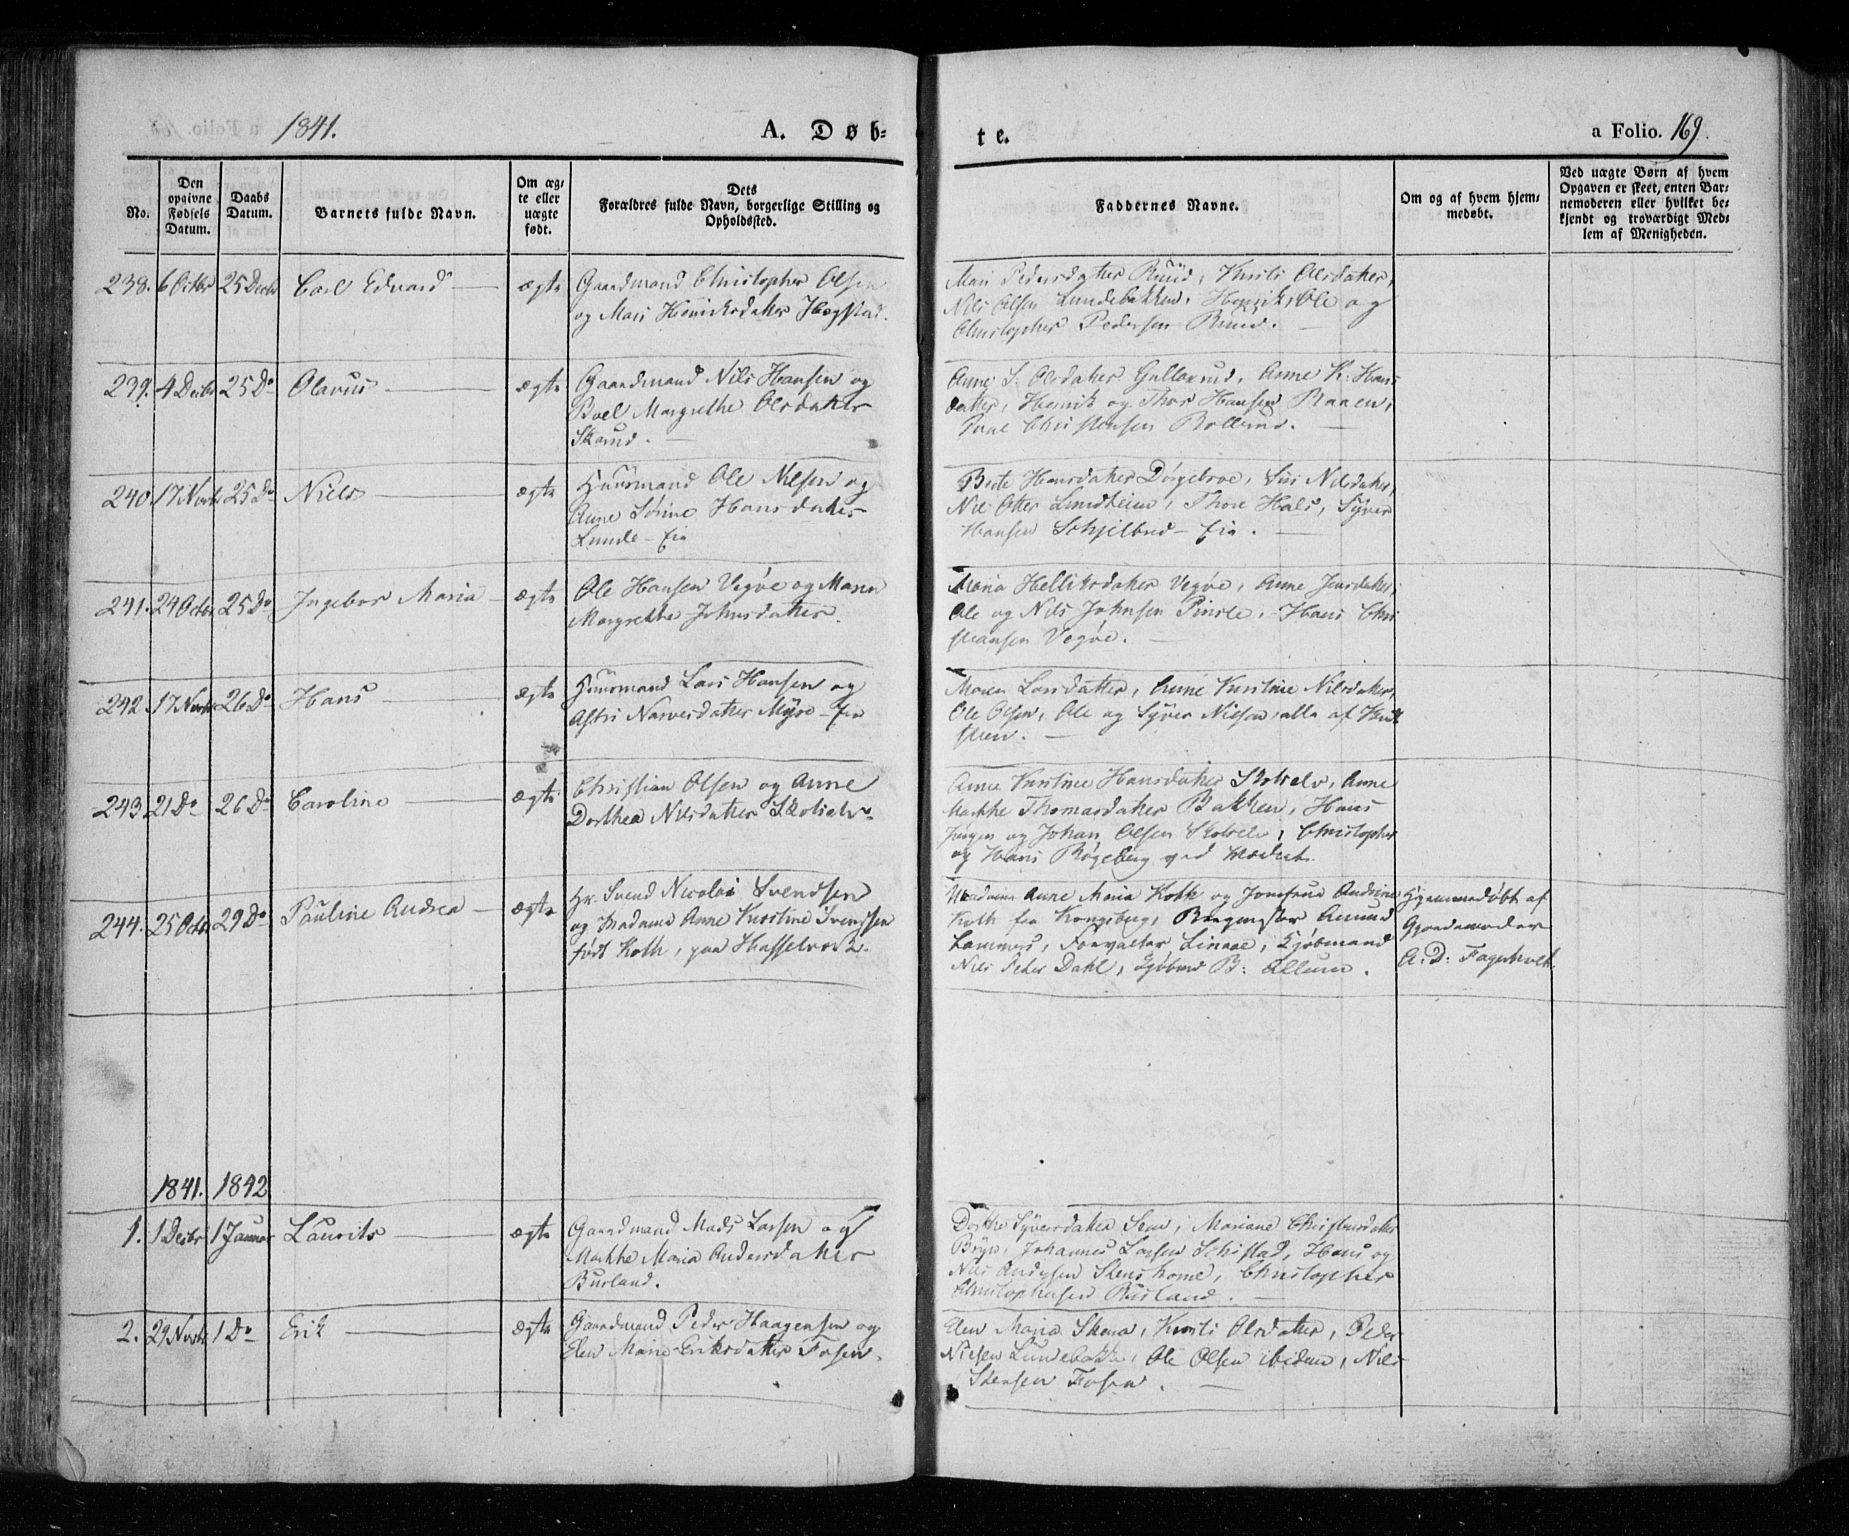 1841.
A. Døb-
te.
a Folio. 169.
No.
Den
opgivne
Fødsels
Datum.
Daabs
Datum.
Barnets fulde Navn.
Om æg-
te eller
uægte
født.
Dets
Forældres fulde Navn, borgerlige Stilling og
Opholdssted.
Faddernes Navne.
Om og af hvem hjem-
medøbt.
Ved uægte Børn af hvem
Opgaven er skeet, enten Bar-
nemoderen eller hvilket be-
kjendt og troværdigt Med-
lem af Menigheden.
238. 6 Octbr 25 Decbr Carl Edvard ægte Gaardmand Christopher Olsen
og Mari Henriksdatter
Mari Pedersdatter Ruud, Kirsti Olsdatter,
Nils Olsen Lundebakken, Henrik, Ole og
Christopher Pedersen Ruud.
239. 4 Decbr 25 Do Olavus ægte Gaardmand Nils Hansen og
Boel Margrethe Olsdatter
Skarud.
Anne S. Olsdatter Gullerud, Anne K. Hans
datter, Henrik og Thor Hansen Braaen,
Christensen
240. 17 Novbr 25 Do Niels ægte Huusmand Ole Nilsen og
Anne Sørine Hansdatter
Lunde-Eie
Berte Hansdatter Siri Nilsdatter,
Nils Otter Lundteien, Thore Hals, Syver
Hansen Eie.
241. 24 Octbr 25 Do Ingebor Maria ægte Ole Hansen Vegøe og Maren
Margrethe Johnsdatter.
Maria Helliksdatter Vegøe, Anne Jensdatter,
Ole og Nils Johnsen Pinsle, Hans Chri
stiansen Vegøe.
242. 17 Novbr 26 Do Hans ægte Huusmand Lars Hansen og
Astri Narvesdatter Myre-Eie
Maren Larsdatter, Anne Kirstine Nilsdatter,
Ole Olsen, Ole og Syver Nilsen, alle af
243. 21 Do 26 Do Caroline ægte Christian Olsen og Anne
Dorthea Nilsdatter Skotselv
Anne Kirstine Hansdatter Skotselv, Anne
Marthe Thomasdatter Bakken, Hans
Jørgen og Johan Olsen Skotselv, Christopher
og Hans Bøgeberg ved
244. 25 Octbr 29 Do Pauline Andrea ægte Hr. Svend Nicolai Svendsen
og Madame Anne Kirstine Svendsen
født Koth, paa Hasselværk.
Madame Anne Maria Koth og Jomfrue Andrine
Koth fra Kongsberg, Amund
Lammers, Forvalter Linaae, Kjøbmand
Nils Peter Dahl, Kjøbmd B. Ellum.
Hjemmedøbt af
Gjordemoder
A. D. Fagerholt.
1841. 1842
1. 1 Decbr 1 Januar Laurits ægte Gaardmand Mads Larsen og
Marthe Maria Andersdatter
Burland.
Dorthe Syversdatter Sem, Mariane Christensdatter
Bryn, Johannes Larsen Schistad, Hans og
Nils Andersen Stenshorne, Christopher
Christophersen Burland.
2. 29 Novbr 1 Do Erik ægte Gaardmand Peder Haagensen og
Elen Marie Eriksdatter Fosen.
Elen Maria Kirsti Olsdatter, Peder
Nielsen Lundebakke, Ole Olsen ibidem, Nils
Stensen Fosen.